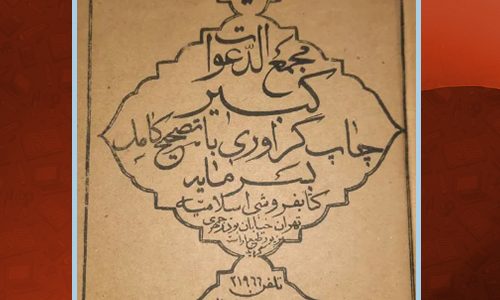 مجمع الدّعوات
کبیر
چاپ گراوری با تصحیح کامل
بسرمایه
کتابفروشی اسلامیه
تهران خیابان بوذرجمهری
تلفن ۲۱۹۶۶